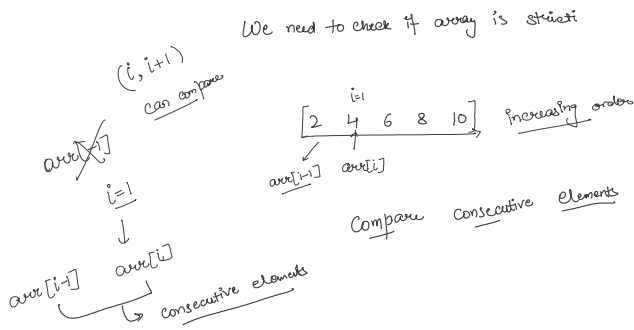 We need to check if array is stricti
(i, i+1)
can compare
arr[-1]
i=1
arr[i-1] arr[i]
consecutive elements
i=1
[2 4 6 8 10]
increasing order
arr[i-1] arr[i]
Compare consecutive elements